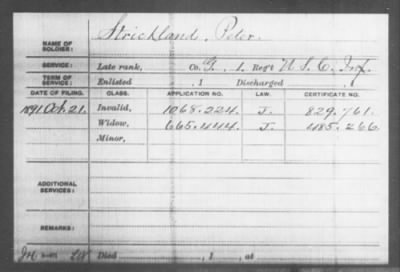 NAME OF SOLDIER: Strickland, Peter.
SERVICE: Late rank, Co. G. 1. Reg't U. S. C. Inf.
TERM OF SERVICE: Enlisted , 1 Discharged , 1
DATE OF FILING. CLASS. APPLICATION NO. LAW. CERTIFICATE NO.
1891 Oct. 21. Invalid, 1068.224. J. 829.761.
Widow, 665.444. J. 485.266
Minor,
ADDITIONAL SERVICES:
REMARKS:
Died , 1 , at